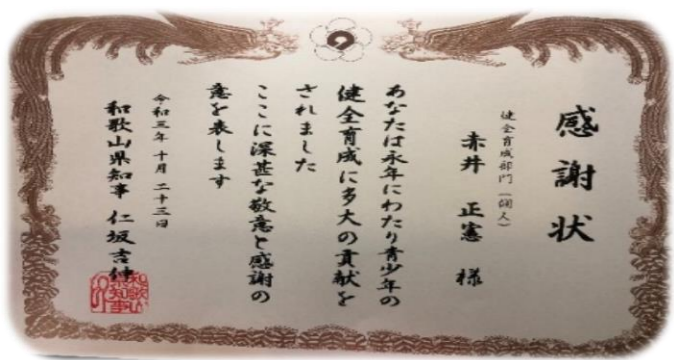 感謝状
健全育成部門(個人)
赤井 正憲 様
あなたは永年にわたり青少年の
健全育成に多大の貢献を
されました
ここに深甚な敬意と感謝の
意を表します
令和三年十月二十三日
和歌山県知事 仁坂吉伸